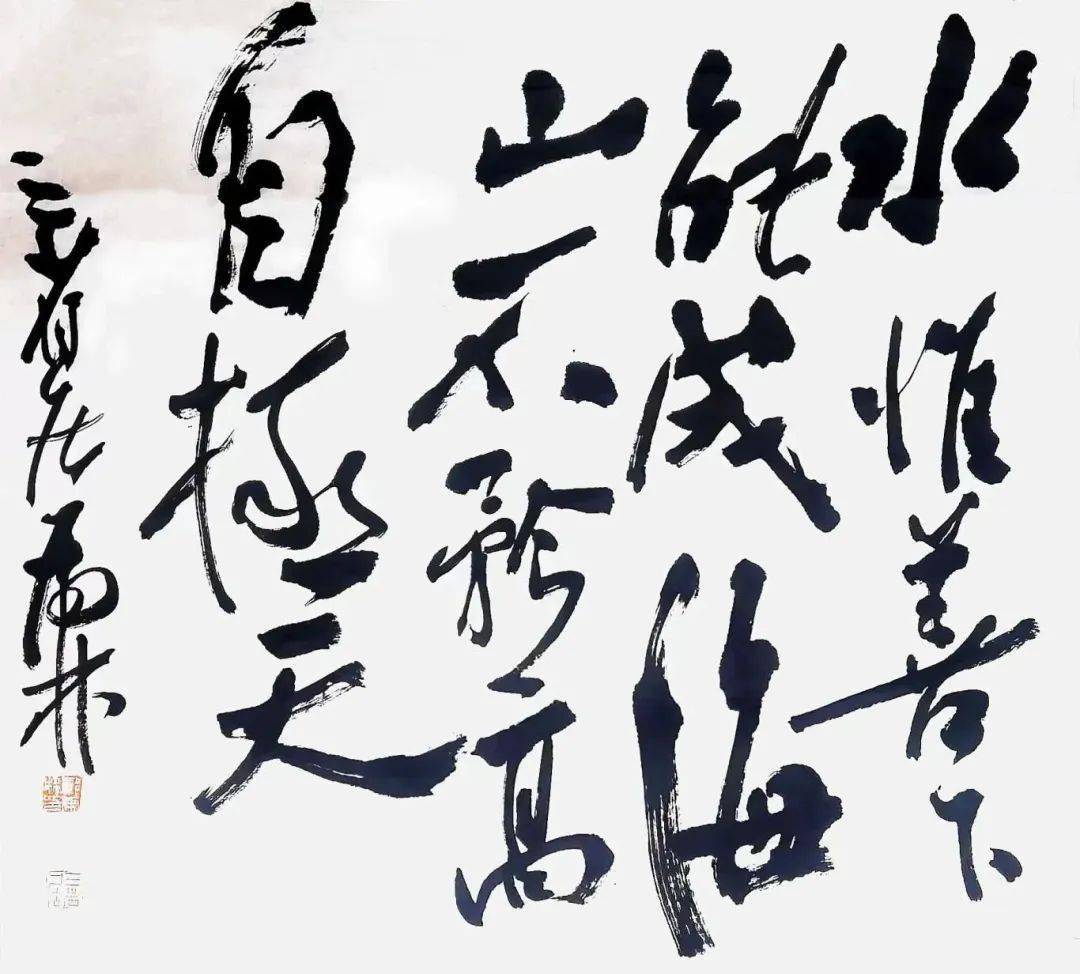 水惟善下
能成海
山不矜高
自極天